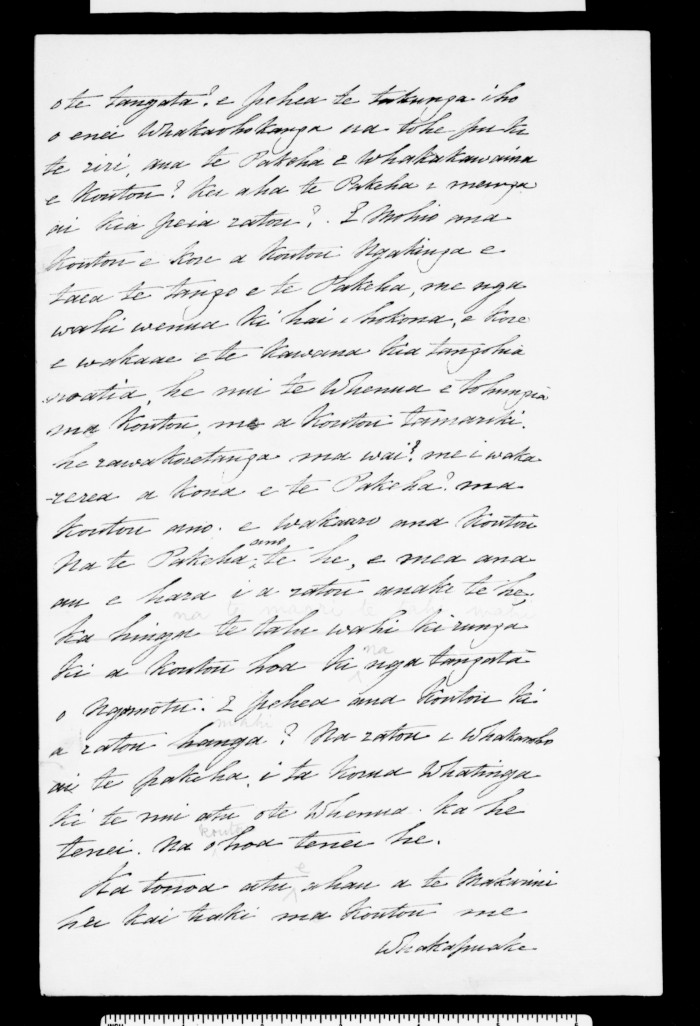 o te tangata? e pehea te takunga iho
o enei Whakaohokanga na tohe pu ki
te riri, ana te Pakeha e whakakawaina
e Koutou? Kei aha te Pakeha e meinga
ai Kia peia ratou?. E Mohio ana
Koutou e kore a Koutou Ngakinga e
taea te tango e te Pakeha, me nga
wahi wenua ki hai i hokona, e Kore
e wakaae e te Kawana Kia tangohia
noatia, he nui te Whenua e tohungia
ma Koutou, me a Koutou tamariki.
he rawakoretanga ma wai? me i waka
-rerea a kona e te Pakeha? ma
Koutou ano. e wakaaro ana Koutou
Na te Pakeha ano te he, e mea ana
au e hara i a ratou anake te he.
na te
Ka hinga te tahi wahi ki runga
ki a Koutou hoa ki na nga tangata
o Ngamotu. E pehea ana Koutou ki
mahi
a ratou hanga? Na ratou i Whakaoho
ai te pakeha, i ta Koma Whatinga
ki te nui atu o te Whenua. Ka he
tenei. Na o koutou hoa tenei he.
Ka tonoa atu e ahau a te Makarini
hei Kai haki ma Koutou me
Whakapuake